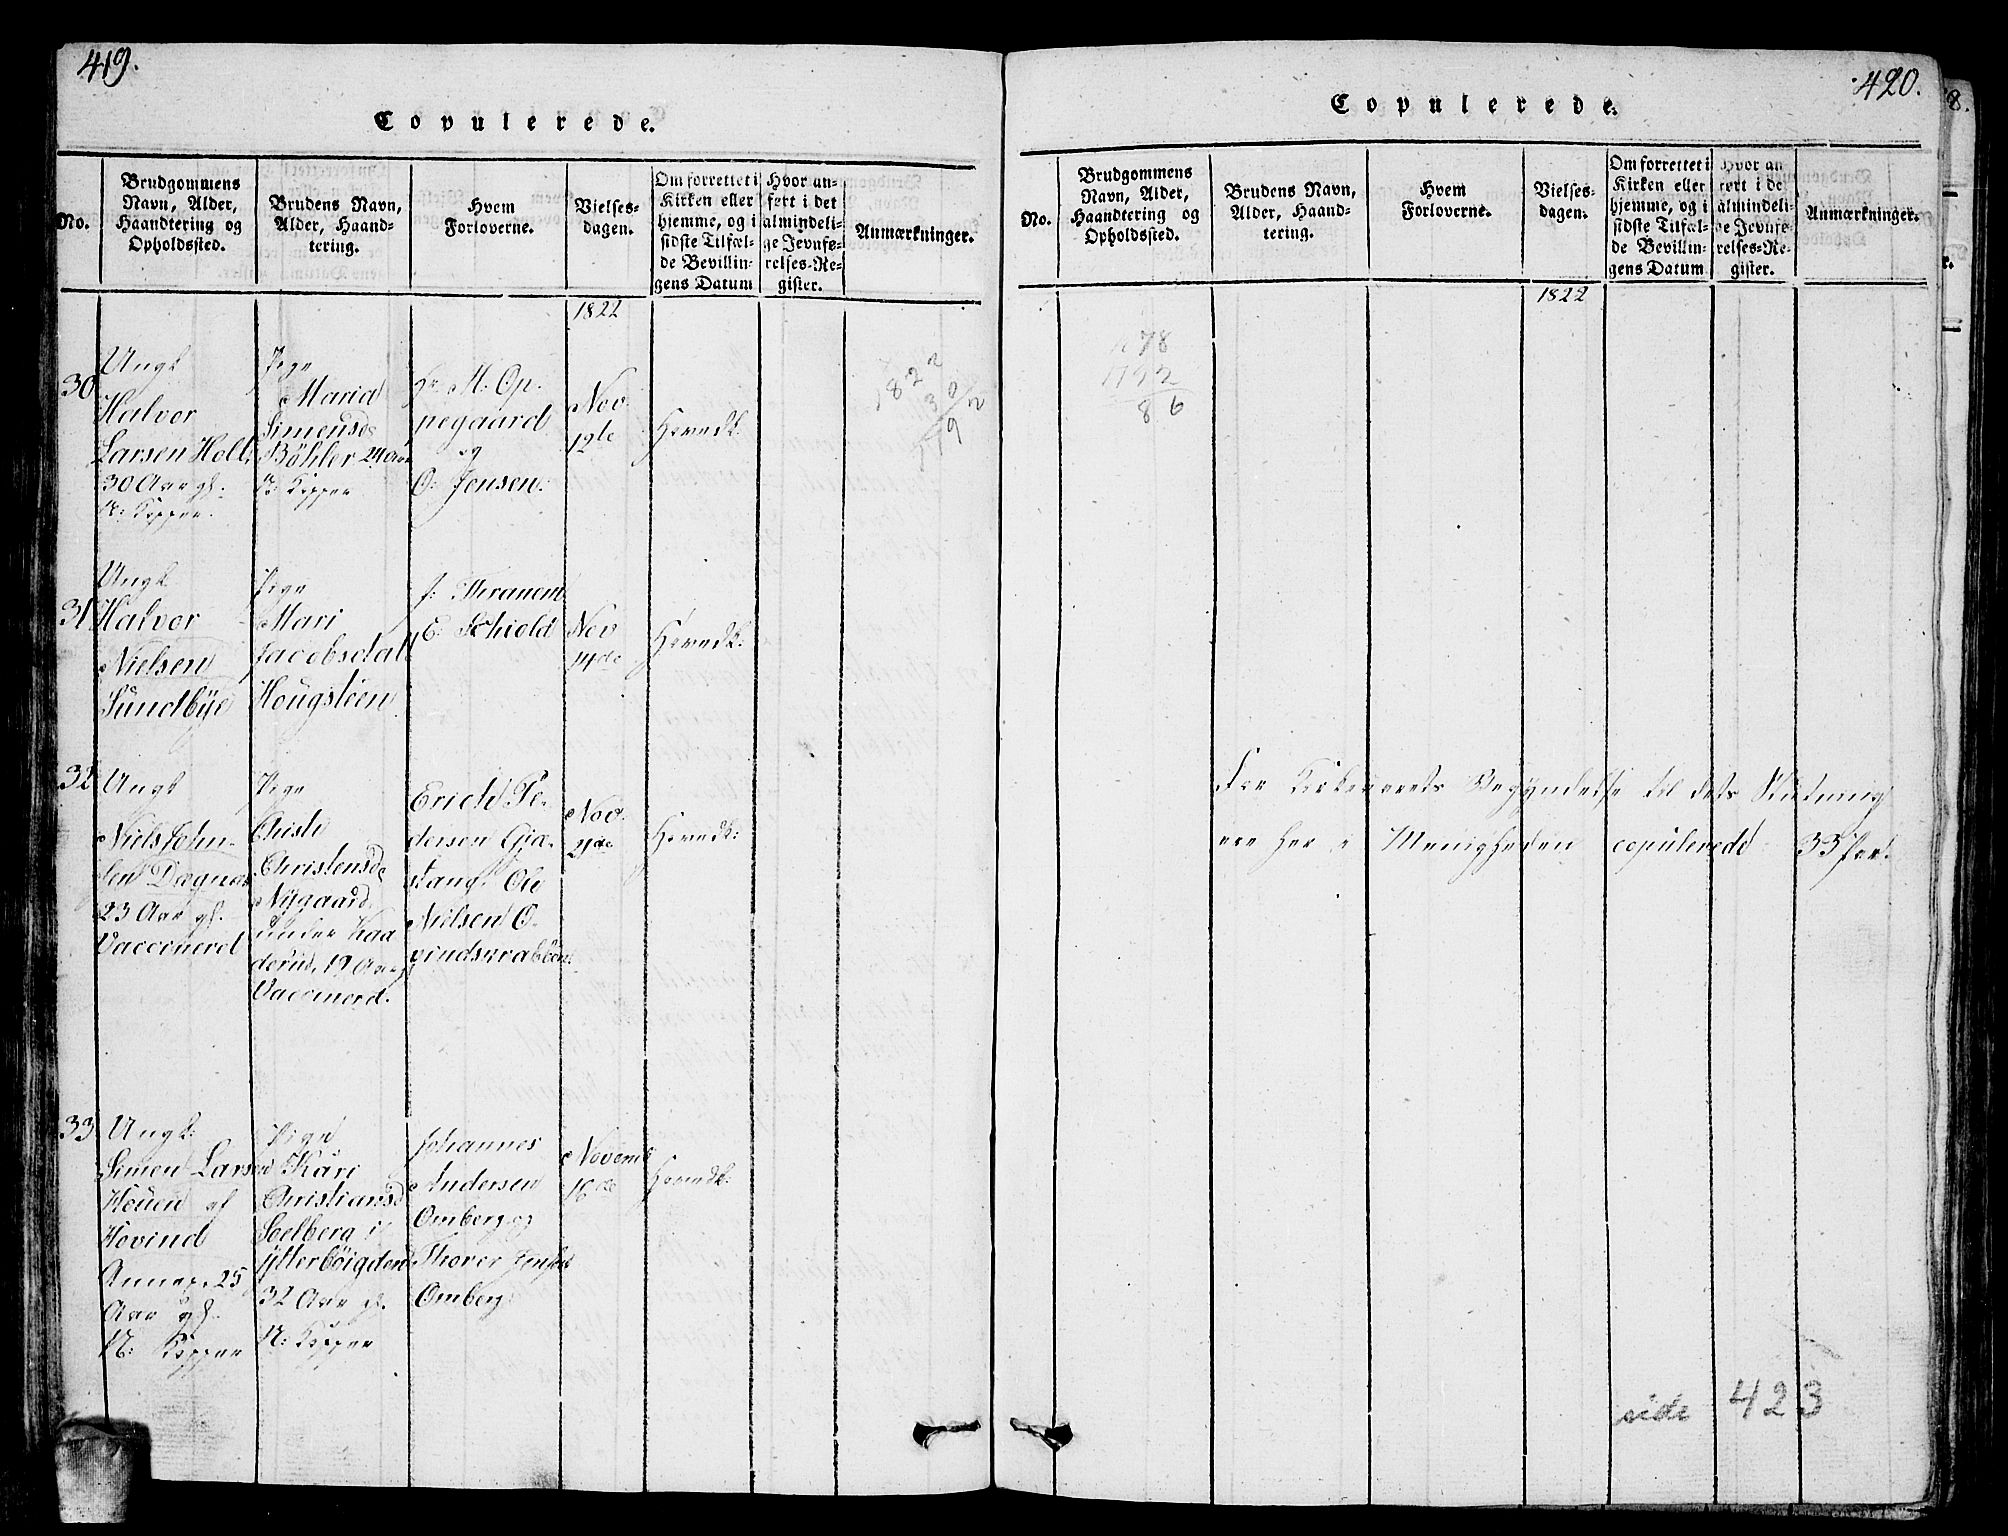 419.
Copulerede.
No.
Brudgommens
Navn, Alder,
Haandtering og
Opholdssted.
Brudens Navn,
Alder, Haand-
tering.
Hvem
Forloverne.
Vielses-
dagen.
Om forrettet i
Kirken eller
hjemme, og i
sidste Tilfæl-
de Bevillin-
gens Datum
Hvor an-
ført i det
almindeli-
ge Jevnfø-
relses-Re-
gister.
Anmærkninger.
1822
30
Ungk
Halvor
Larsen Holl
30 Aar gl.
N: Kopper.
Pige
Maria
Simensd
Böhler 24 Aar
N: Kopper
Hr M. Op-
pegaard
og
O: Jensen:
Nov.
12te
Hovedk:
1822
30
31
Ungk
Halvor
Nielsen
Sundbÿe
Pige
Mari
Jacobsdatt
Hougsteen
J:
E: Schiold
Nov
14de
Hovedk:
32
Ungk
Niels John-
sen
23 Aar gl.
Vaccinerd
Pige
Christi
Christensd
Nÿgaard
under Kaa
derud, 19 Aar
Vaccinerd.
Erich Pe-
dersen Gjæ-
stang. Ole
Nielsen O-
Nov.
21de
Hovedk:
33
Ungk:
Simen Larsen
Heüen af
Hovind
Annex. 25
Aar gl.
N: Kopper
Pige
Kari
Christiansd
Soelberg i
Ÿtterböigden
32 Aar gl.
N: Kopper
Johannes
Andersen
Omberg og
Thover Jensen
Omberg:
Novemb
16de
Hovedk:
420.
Copulerede.
No.
Brudgommens
Navn, Alder,
Haandtering og
Opholdssted.
Brudens Navn,
Alder, Haand-
tering.
Hvem
Forloverne.
Vielses-
dagen.
Om forrettet i
Kirken eller
hjemme, og i
sidste Tilfæl-
de Bevillin-
gens Datum
Hvor an-
ført i de
almindeli-
ge Jevnfø-
relses-Re-
gister.
Anmærkninger.
1822
78
86
Fra Kirkeaarets Begyndelse til dets Slutning
ere her i Menigheden copulerede 33 Par.
side 423